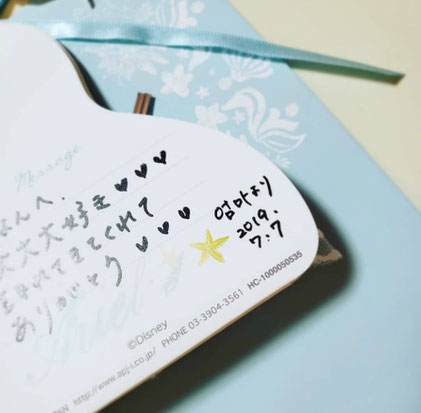 Message
ちゃんへ.
大大大好き♥♥♥
生まれてきてくれて
ありがとう♥♥♥
엄마より
2019.
7.7
Ariel
©Disney
PAN http://www.apj-i.co.jp/ PHONE 03-3904-3561 HC-1000050535